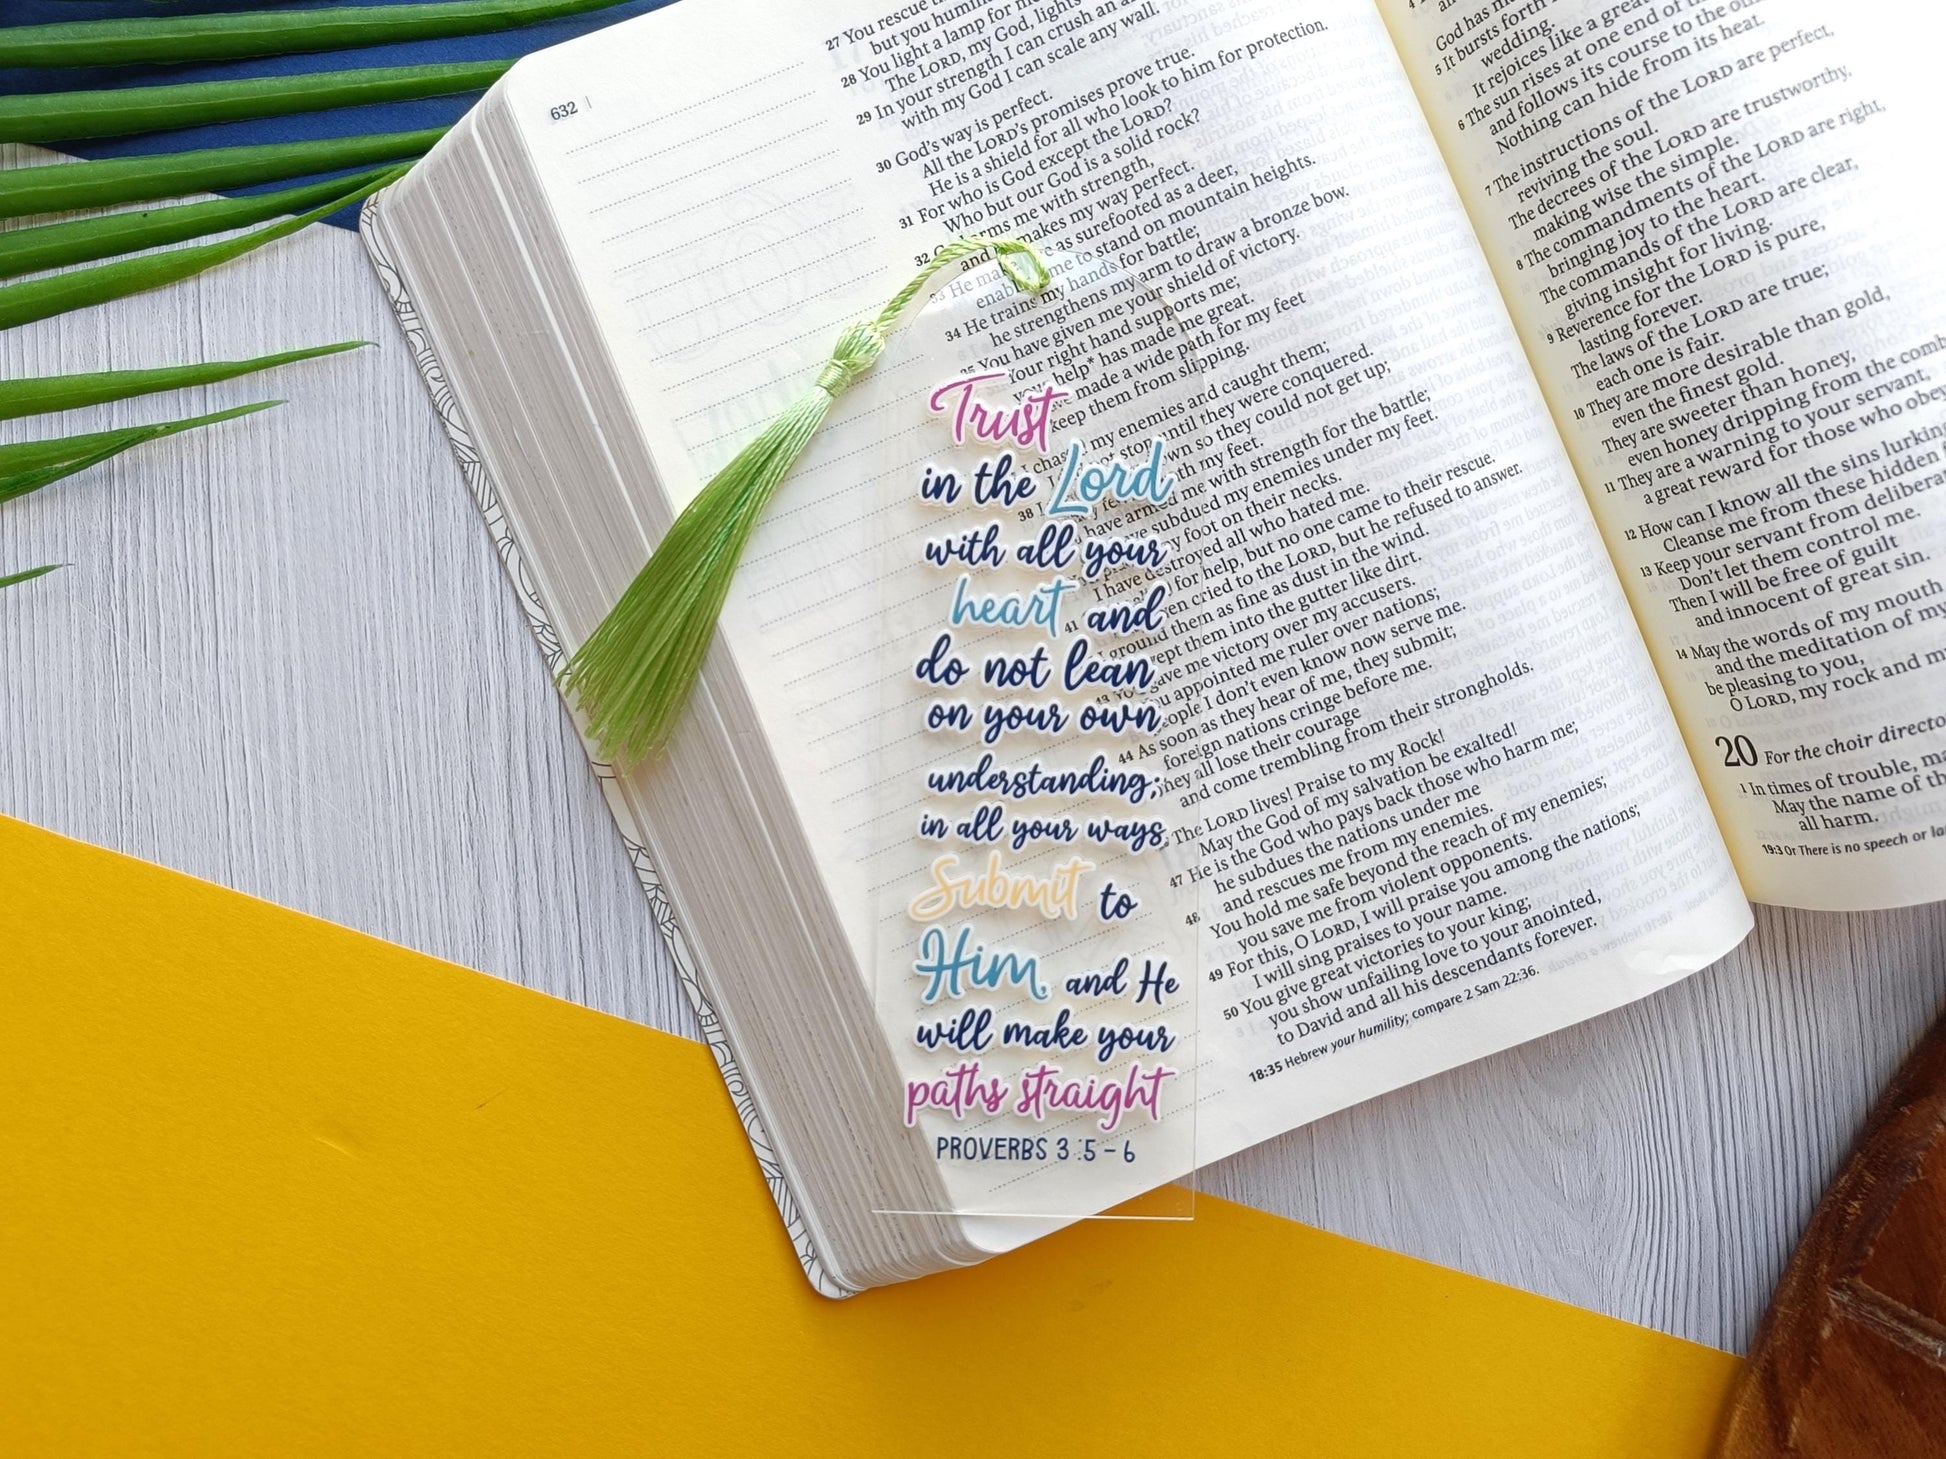 632
27 You rescue
but you humili
You light a lamp for me
28 The LORD, my God, lights
29 In your strength I can crush an
with my God I can scale any wall.
30 God's way is perfect.
All the LORD's promises prove true.
He is a shield for all who look to him for protection.
31 For who is God except the LORD?
Who but our God is a solid rock?
32 God arms me with strength,
and makes my way perfect.
33 He makes as surefooted as a deer,
enabl me to stand on mountain heights.
34 He trains my hands for battle;
he strengthens my arm to draw a bronze bow.
35 You have given me your shield of victory.
Your right hand supports me;
your help* has made me great.
have made a wide path for my feet
keep them from slipping.
I chas my enemies and caught them;
not stop until they were conquered.
own so they could not get up;
my feet.
have armed me with strength for the battle;
subdued my enemies under my feet.
foot on their necks.
I have destroyed all who hated me.
for help, but no one came to their rescue.
cried to the LORD, but he refused to answer.
I ground them as fine as dust in the wind.
them into the gutter like dirt.
gave me victory over my accusers.
appointed me ruler over nations;
people I don't even know now serve me.
44 As soon as they hear of me, they submit;
foreign nations cringe before me.
They all lose their courage
and come trembling from their strongholds.
The LORD lives! Praise to my Rock!
May the God of my salvation be exalted!
47 He is the God who pays back those who harm me;
he subdues the nations under me
48 and rescues me from my enemies.
You hold me safe beyond the reach of my enemies;
you save me from violent opponents.
49 For this, O LORD, I will praise you among the nations;
I will sing praises to your name.
50 You give great victories to your king;
you show unfailing love to your anointed,
to David and all his descendants forever.
18:35 Hebrew your humility; compare 2 Sam 22:36.
Trust
in the Lord
with all your
heart and
do not lean
on your own
understanding;
in all your ways
Submit to
Him, and He
will make your
paths straight
PROVERBS 3:5-6
God has
5 It bursts forth
wedding.
It rejoices like a great
6 The sun rises at one end of
and follows its course to the
Nothing can hide from its heat.
7 The instructions of the LORD are perfect,
reviving the soul.
The decrees of the LORD are trustworthy,
making wise the simple.
8 The commandments of the LORD are right,
bringing joy to the heart.
The commands of the LORD are clear,
giving insight for living.
9 Reverence for the LORD is pure,
lasting forever.
The laws of the LORD are true;
each one is fair.
10 They are more desirable than gold,
even the finest gold.
They are sweeter than honey,
even honey dripping from the comb
11 They are a warning to your servant,
a great reward for those who obey
12 How can I know all the sins lurking
Cleanse me from these hidden
13 Keep your servant from deliberat
Don't let them control me.
Then I will be free of guilt
and innocent of great sin.
14 May the words of my mouth
and the meditation of my
be pleasing to you,
O LORD, my rock and my
20 For the choir directo
1 In times of trouble, ma
May the name of the
all harm.
19:3 Or There is no speech or la